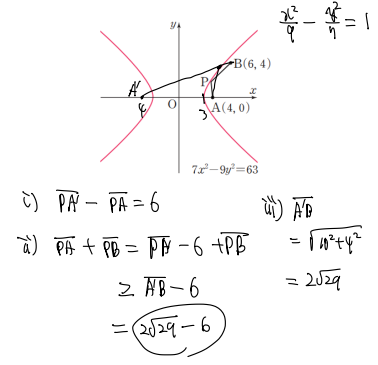 x²/9 − y²/7 = 1
y
B(6, 4)
P
A'
x
4
O
3
A(4, 0)
7x²−9y²=63
i) PA' − PA = 6
ii) PA + PB = PA' − 6 + PB
≥ A'B − 6
= 2√29 − 6
iii) A'B
= √10²+4²
= 2√29